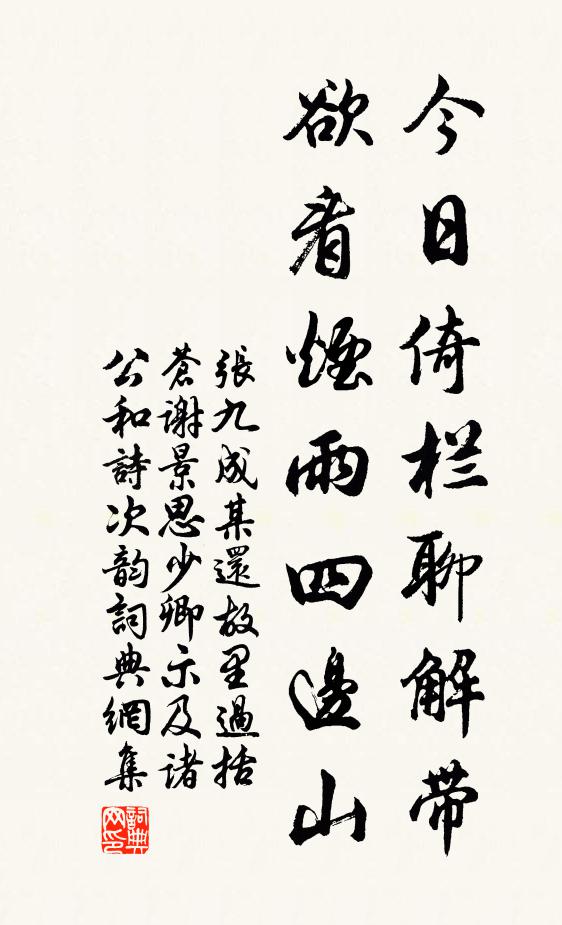 今日倚栏聊解带
欲看煙雨四邊山
張九成某還故里過括
蒼谢景思少卿示及诸
公和詩次韵詞典網集
詞典网印